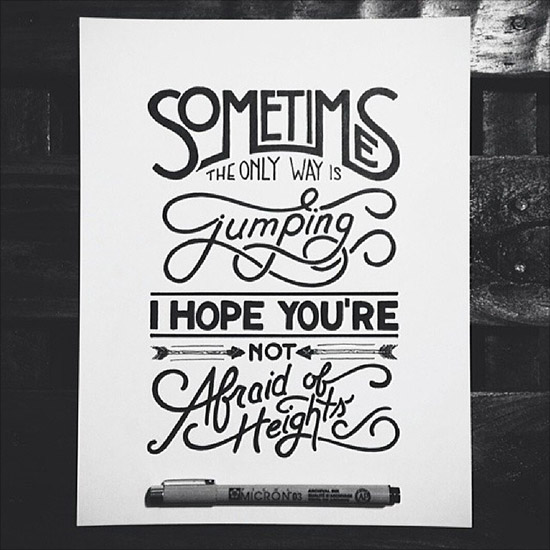 SOMETIMES
THE ONLY WAY IS
jumping
I HOPE YOU'RE
NOT
Afraid of
Heights
MICRON 03
ARCHIVAL INK